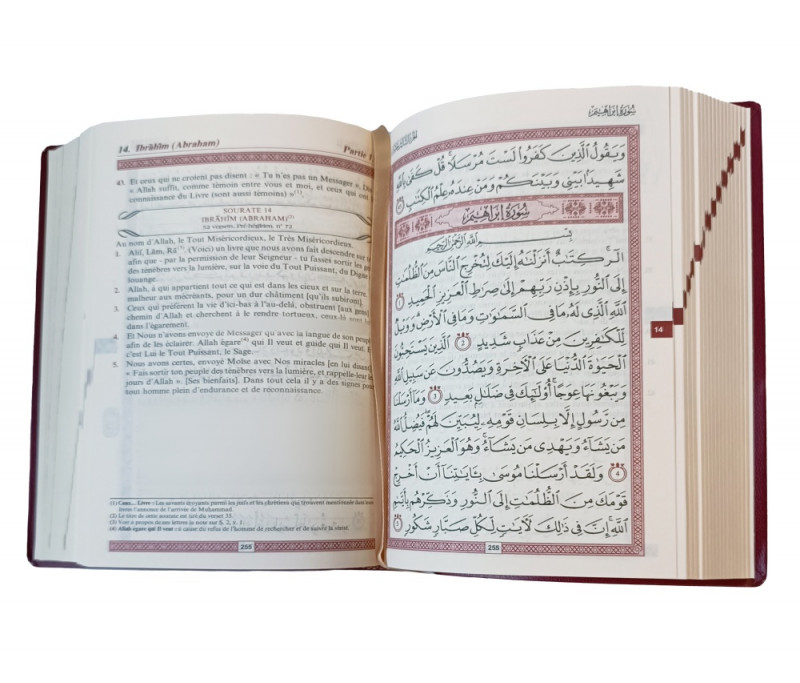 14. Ibrāhīm (Abraham)
Partie 1
43. Et ceux qui ne croient pas disent : « Tu n'es pas un Messager ». Dis
« Allah suffit, comme témoin entre vous et moi, et ceux qui ont
connaissance du Livre (sont aussi témoins) »(1)
SOURATE 14
IBRĀHĪM (ABRAHAM)(2)
52 versets, Pré-hégirien, n° 72
Au nom d'Allah, le Tout Miséricordieux, le Très Miséricordieux.
1. Alif, Lām, Rā(3). (Voici) un livre que nous avons fait descendre sur
afin que - par la permission de leur Seigneur - tu fasses sortir les
des ténèbres vers la lumière, sur la voie du Tout Puissant, du Digne
louange.
2. Allah, à qui appartient tout ce qui est dans les cieux et sur la terre.
malheur aux mécréants, pour un dur châtiment [qu'ils subiront].
3. Ceux qui préfèrent la vie d'ici-bas à l'au-delà, obstruent [aux gens]
chemin d'Allah et cherchent à le rendre tortueux, ceux-là sont
dans l'égarement.
4. Et Nous n'avons envoyé de Messager qu'avec la langue de son peuple
afin de les éclairer. Allah égare(4) qui Il veut et guide qui Il veut.
c'est Lui le Tout Puissant, le Sage.
5. Nous avons certes, envoyé Moïse avec Nos miracles [en lui disant]
« Fais sortir ton peuple des ténèbres vers la lumière, et rappelle-leur
jours d'Allah ». [Ses bienfaits]. Dans tout cela il y a des signes pour
tout homme plein d'endurance et de reconnaissance.
(2) Le titre de cette sourate est tiré du verset 35.
(3) Voir à propos de ces lettres la note sur S. 2, v. 1.
(4) Allah égare qui Il veut : à cause du refus de l'homme de rechercher et de suivre la vérité.
255
سُورَةُ إِبْرَاهِيمَ
وَيَقُولُ الَّذِينَ كَفَرُوا لَسْتَ مُرْسَلًا ۚ قُلْ كَفَىٰ بِاللَّهِ
شَهِيدًا بَيْنِي وَبَيْنَكُمْ وَمَنْ عِندَهُ عِلْمُ الْكِتَابِ ٤٣
سُورَةُ إِبْرَاهِيمَ
بِسْمِ اللَّهِ الرَّحْمَٰنِ الرَّحِيمِ
الر ۚ كِتَابٌ أَنزَلْنَاهُ إِلَيْكَ لِتُخْرِجَ النَّاسَ مِنَ الظُّلُمَاتِ
إِلَى النُّورِ بِإِذْنِ رَبِّهِمْ إِلَىٰ صِرَاطِ الْعَزِيزِ الْحَمِيدِ ١
اللَّهِ الَّذِي لَهُ مَا فِي السَّمَاوَاتِ وَمَا فِي الْأَرْضِ ۗ وَوَيْلٌ
لِّلْكَافِرِينَ مِنْ عَذَابٍ شَدِيدٍ ٢ الَّذِينَ يَسْتَحِبُّونَ
الْحَيَاةَ الدُّنْيَا عَلَى الْآخِرَةِ وَيَصُدُّونَ عَن سَبِيلِ اللَّهِ
وَيَبْغُونَهَا عِوَجًا ۚ أُولَٰئِكَ فِي ضَلَالٍ بَعِيدٍ ٣ وَمَا أَرْسَلْنَا
مِن رَّسُولٍ إِلَّا بِلِسَانِ قَوْمِهِ لِيُبَيِّنَ لَهُمْ ۖ فَيُضِلُّ اللَّهُ
مَن يَشَاءُ وَيَهْدِي مَن يَشَاءُ ۚ وَهُوَ الْعَزِيزُ الْحَكِيمُ
٤ وَلَقَدْ أَرْسَلْنَا مُوسَىٰ بِآيَاتِنَا أَنْ أَخْرِجْ
قَوْمَكَ مِنَ الظُّلُمَاتِ إِلَى النُّورِ وَذَكِّرْهُم بِأَيَّامِ
اللَّهِ ۚ إِنَّ فِي ذَٰلِكَ لَآيَاتٍ لِّكُلِّ صَبَّارٍ شَكُورٍ ٥
255
14